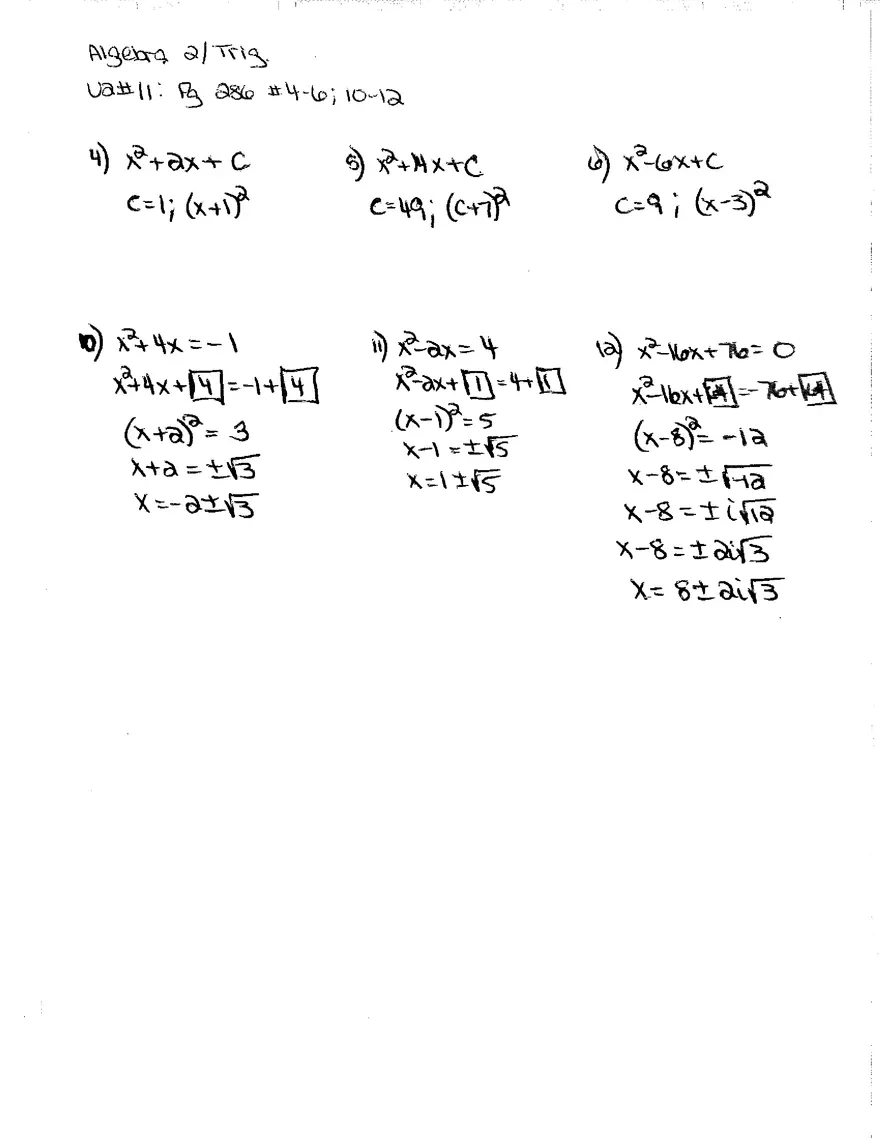 Algebra 2/Trig.
U2#11: Pg 286 #4-6; 10-12
4) x²+2x+C
C=1; (x+1)²
5) x²+14x+C
C=49; (C+7)²
6) x²-6x+C
C=9; (x-3)²
10) x²+4x=-1
x²+4x+4=-1+4
(x+2)²=3
x+2=±√3
x=-2±√3
11) x²-2x=4
x²-2x+1=4+1
(x-1)²=5
x-1=±√5
x=1±√5
12) x²-16x+76=0
x²-16x+64=-76+64
(x-8)²=-12
x-8=±√-12
x-8=±i√12
x-8=±2i√3
x=8±2i√3